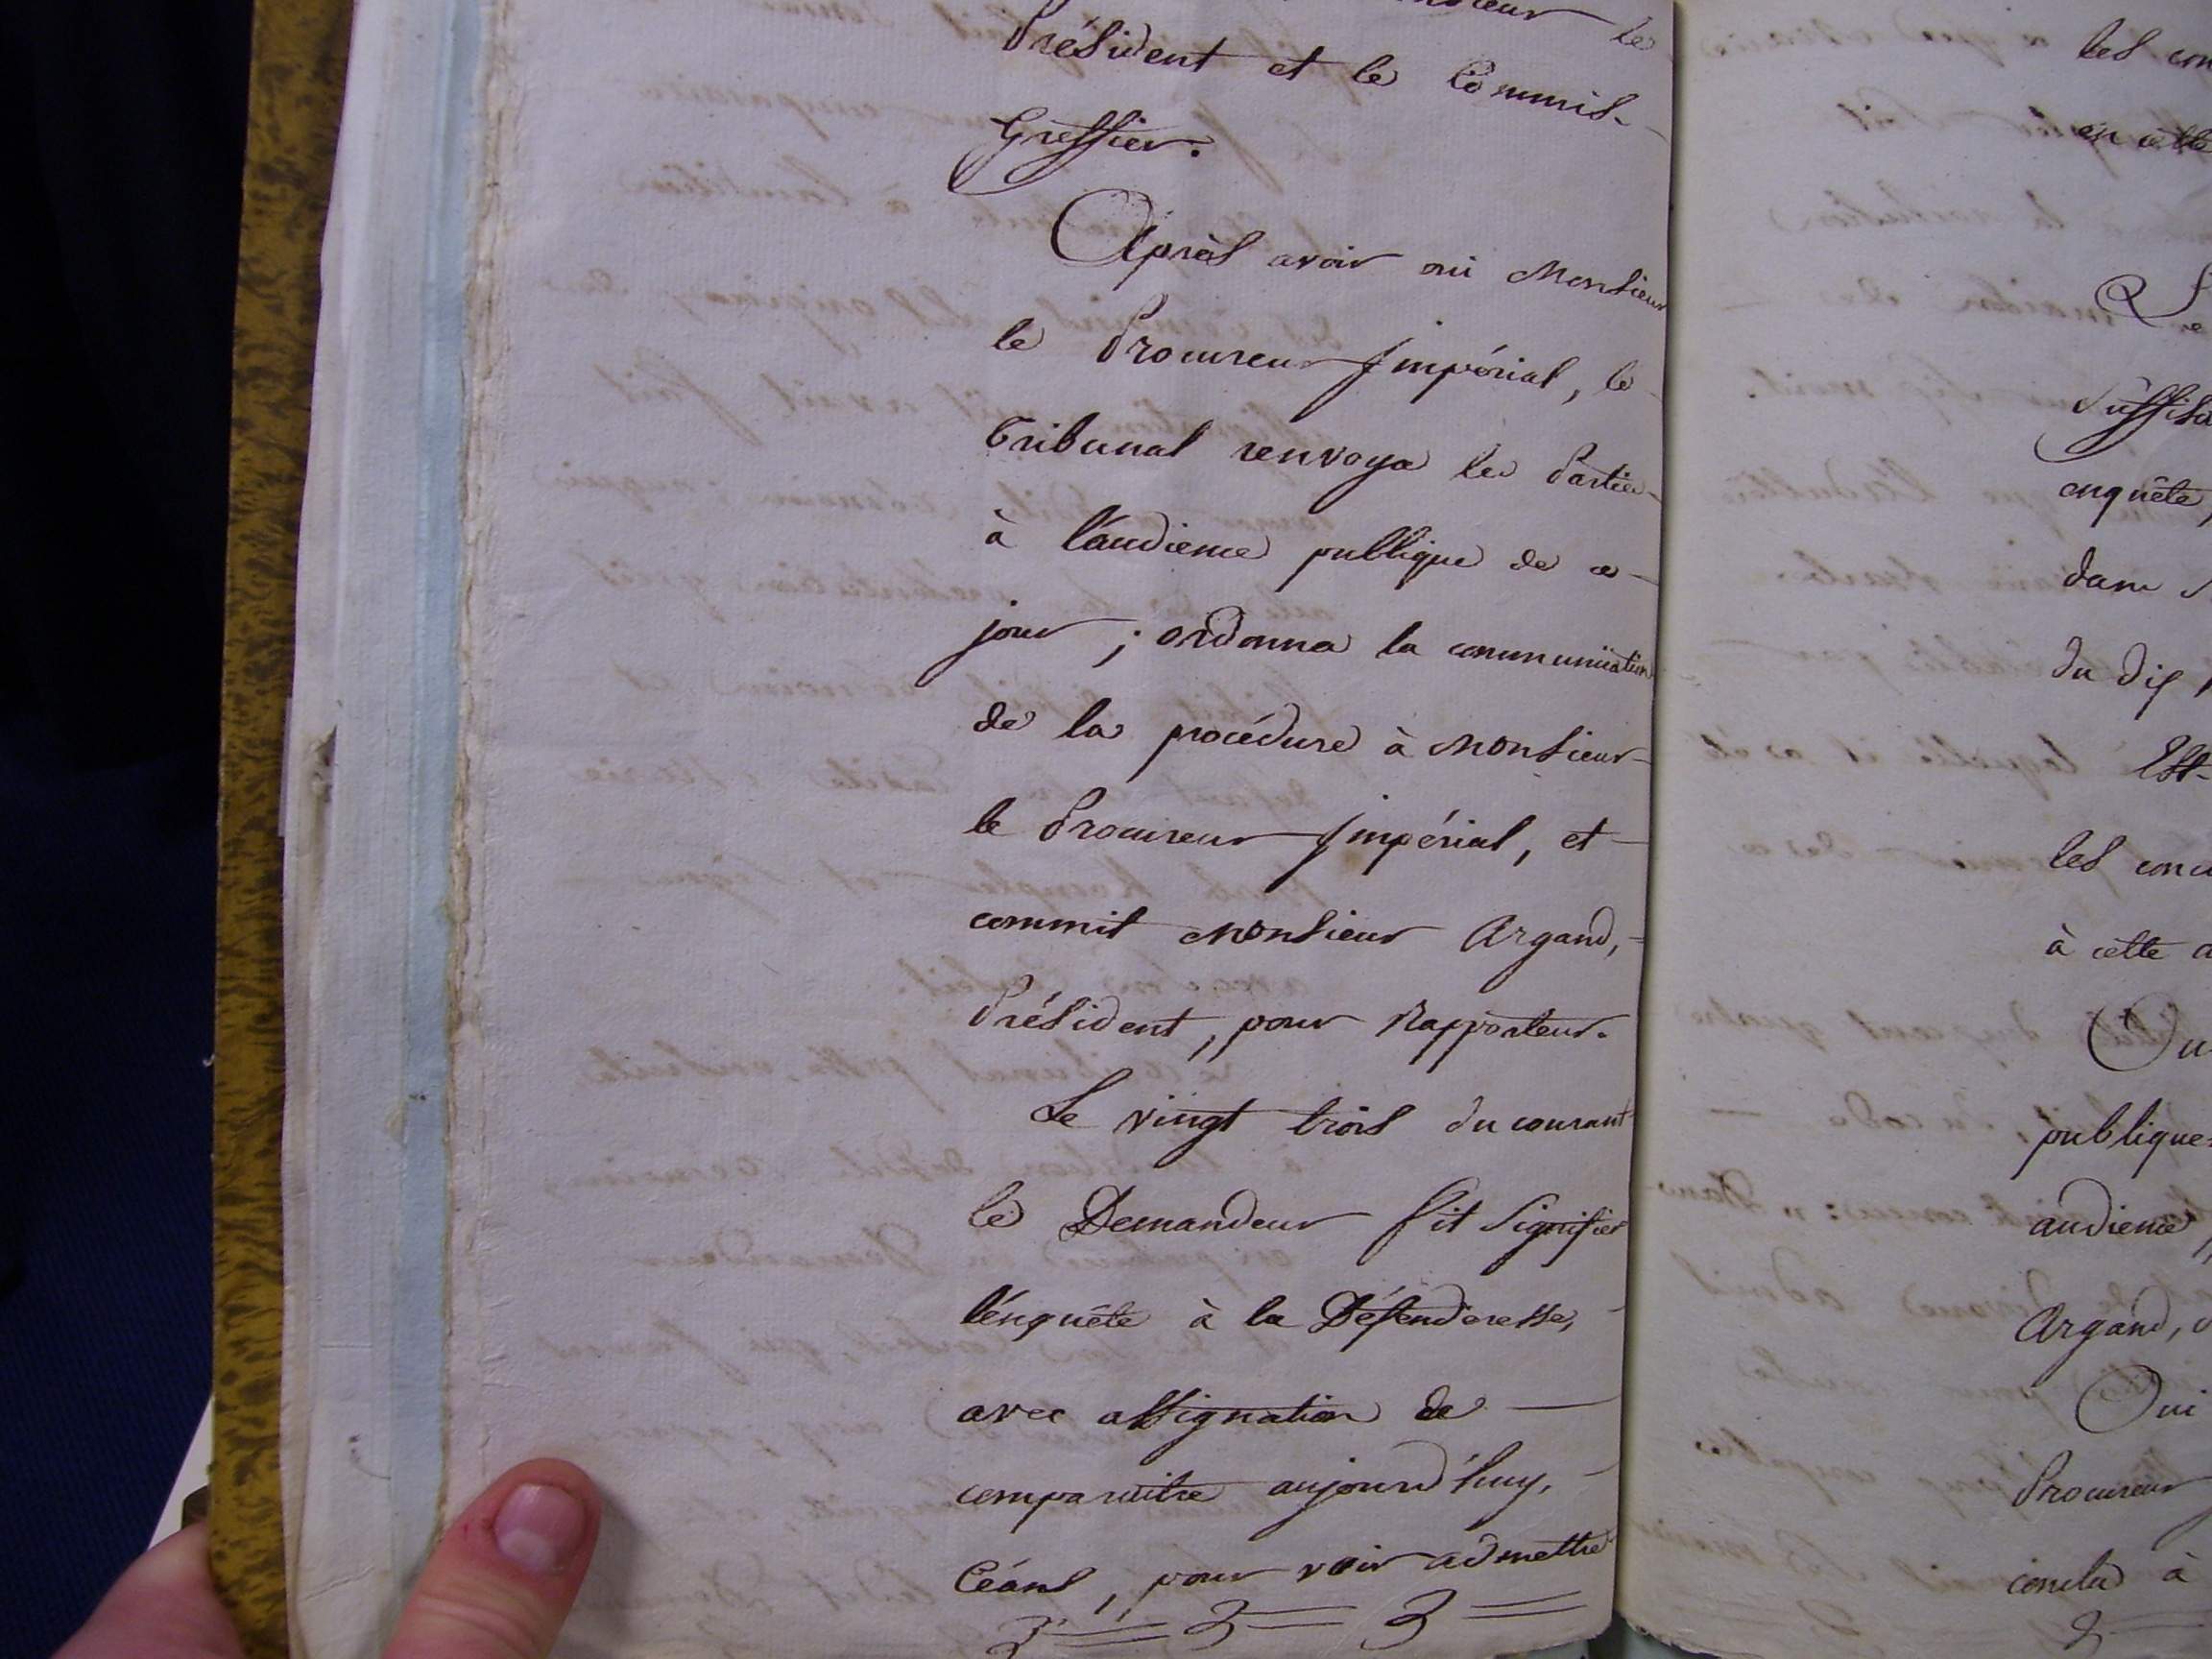 le
Président et le Commis-
Greffier.
Après avoir oui Monsieur
le Procureur Impérial, le
Tribunal renvoya les Parties
à l'audience publique de ce
jour ; ordonna la communication
de la procédure à Monsieur
le Procureur Impérial, et
commit Monsieur Argand,
Président, pour Rapporteur.
Le vingt trois du courant
le Demandeur fit signifier
l'enquête à la Défenderesse,
avec assignation de
comparaitre aujourd'huy,
Céans, pour voir admettre
les con
en cette
Le
suffisa
enquête,
dans
du dix
Est-
les conc
à cette a
Ou
publique
audience,
Argand,
Oui
Procureur
conclud à